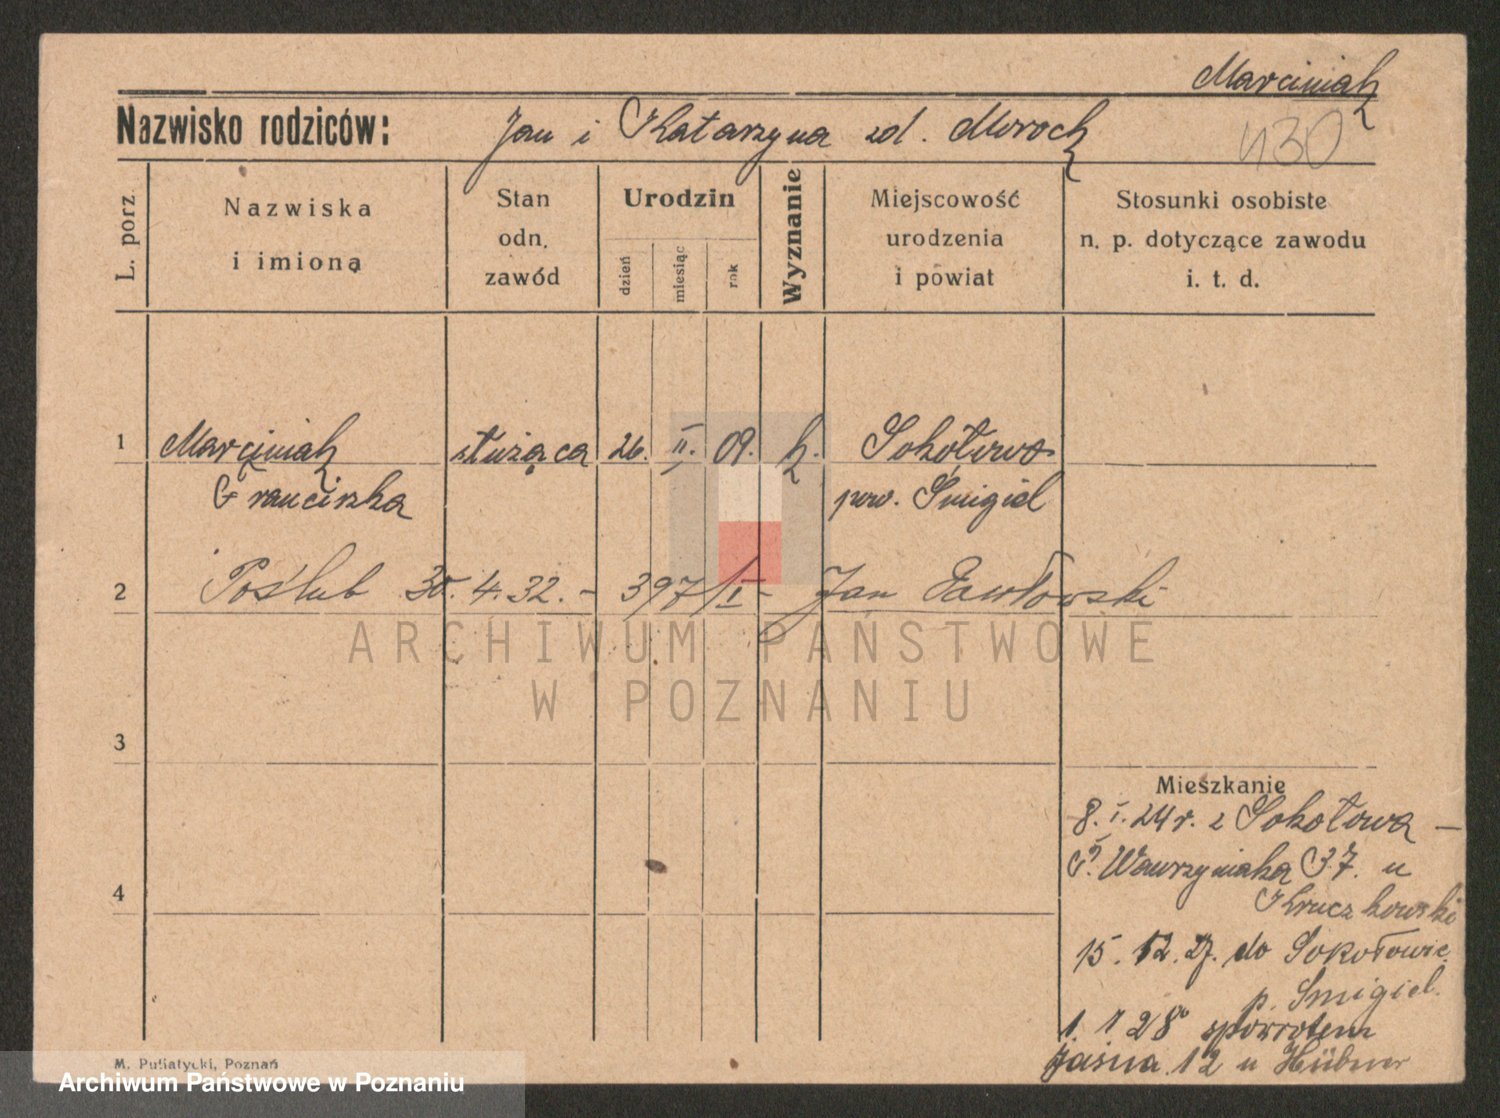 Marciniak
Nazwisko rodziców: Jan i Katarzyna zd. Mrock
430
L. porz.
Nazwiska
i imiona
Stan
odn.
zawód
Urodzin
dzień
miesiąc
rok
Wyznanie
Miejscowość
urodzenia
i powiat
Stosunki osobiste
n. p. dotyczące zawodu
i. t. d.
1 Marciniak służąca 26. II. 09. k. Sokołowo
Franciszka pow. Śmigiel
2 Poślub 30. 4. 32. - 397/I - Jan Pawłowski
ARCHIWUM PAŃSTWOWE
W POZNANIU
3
Mieszkanie
8. I. 24 r. z Sokołowa –
Wawrzyniaka 37. u
4
Kruczkowski
15. 12. 27. do Sokołowic.
p. Śmigiel.
1. 1 28 spowrotem
Jasna 12 u Hübner
M. Pusiatycki, Poznań
Archiwum Państwowe w Poznaniu